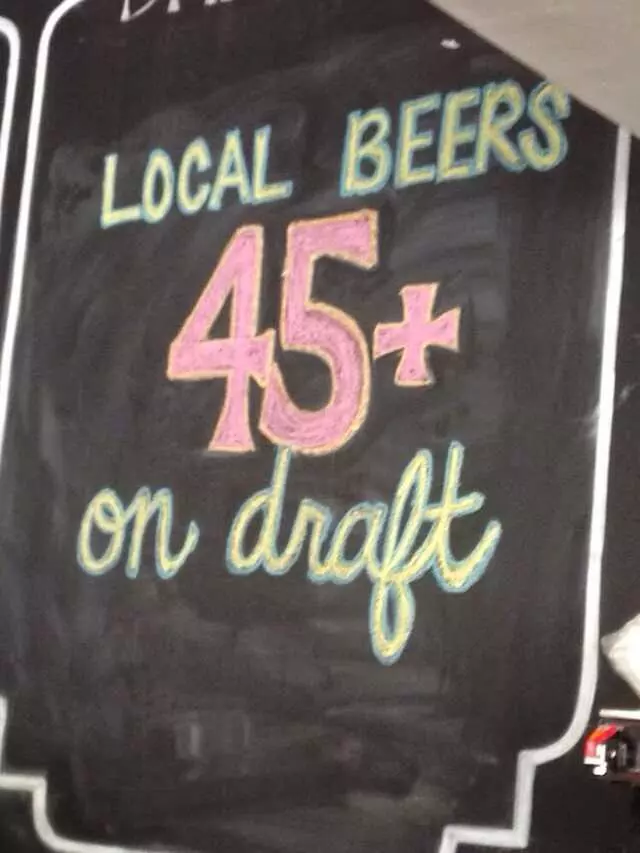 LOCAL BEERS
45+
on draft